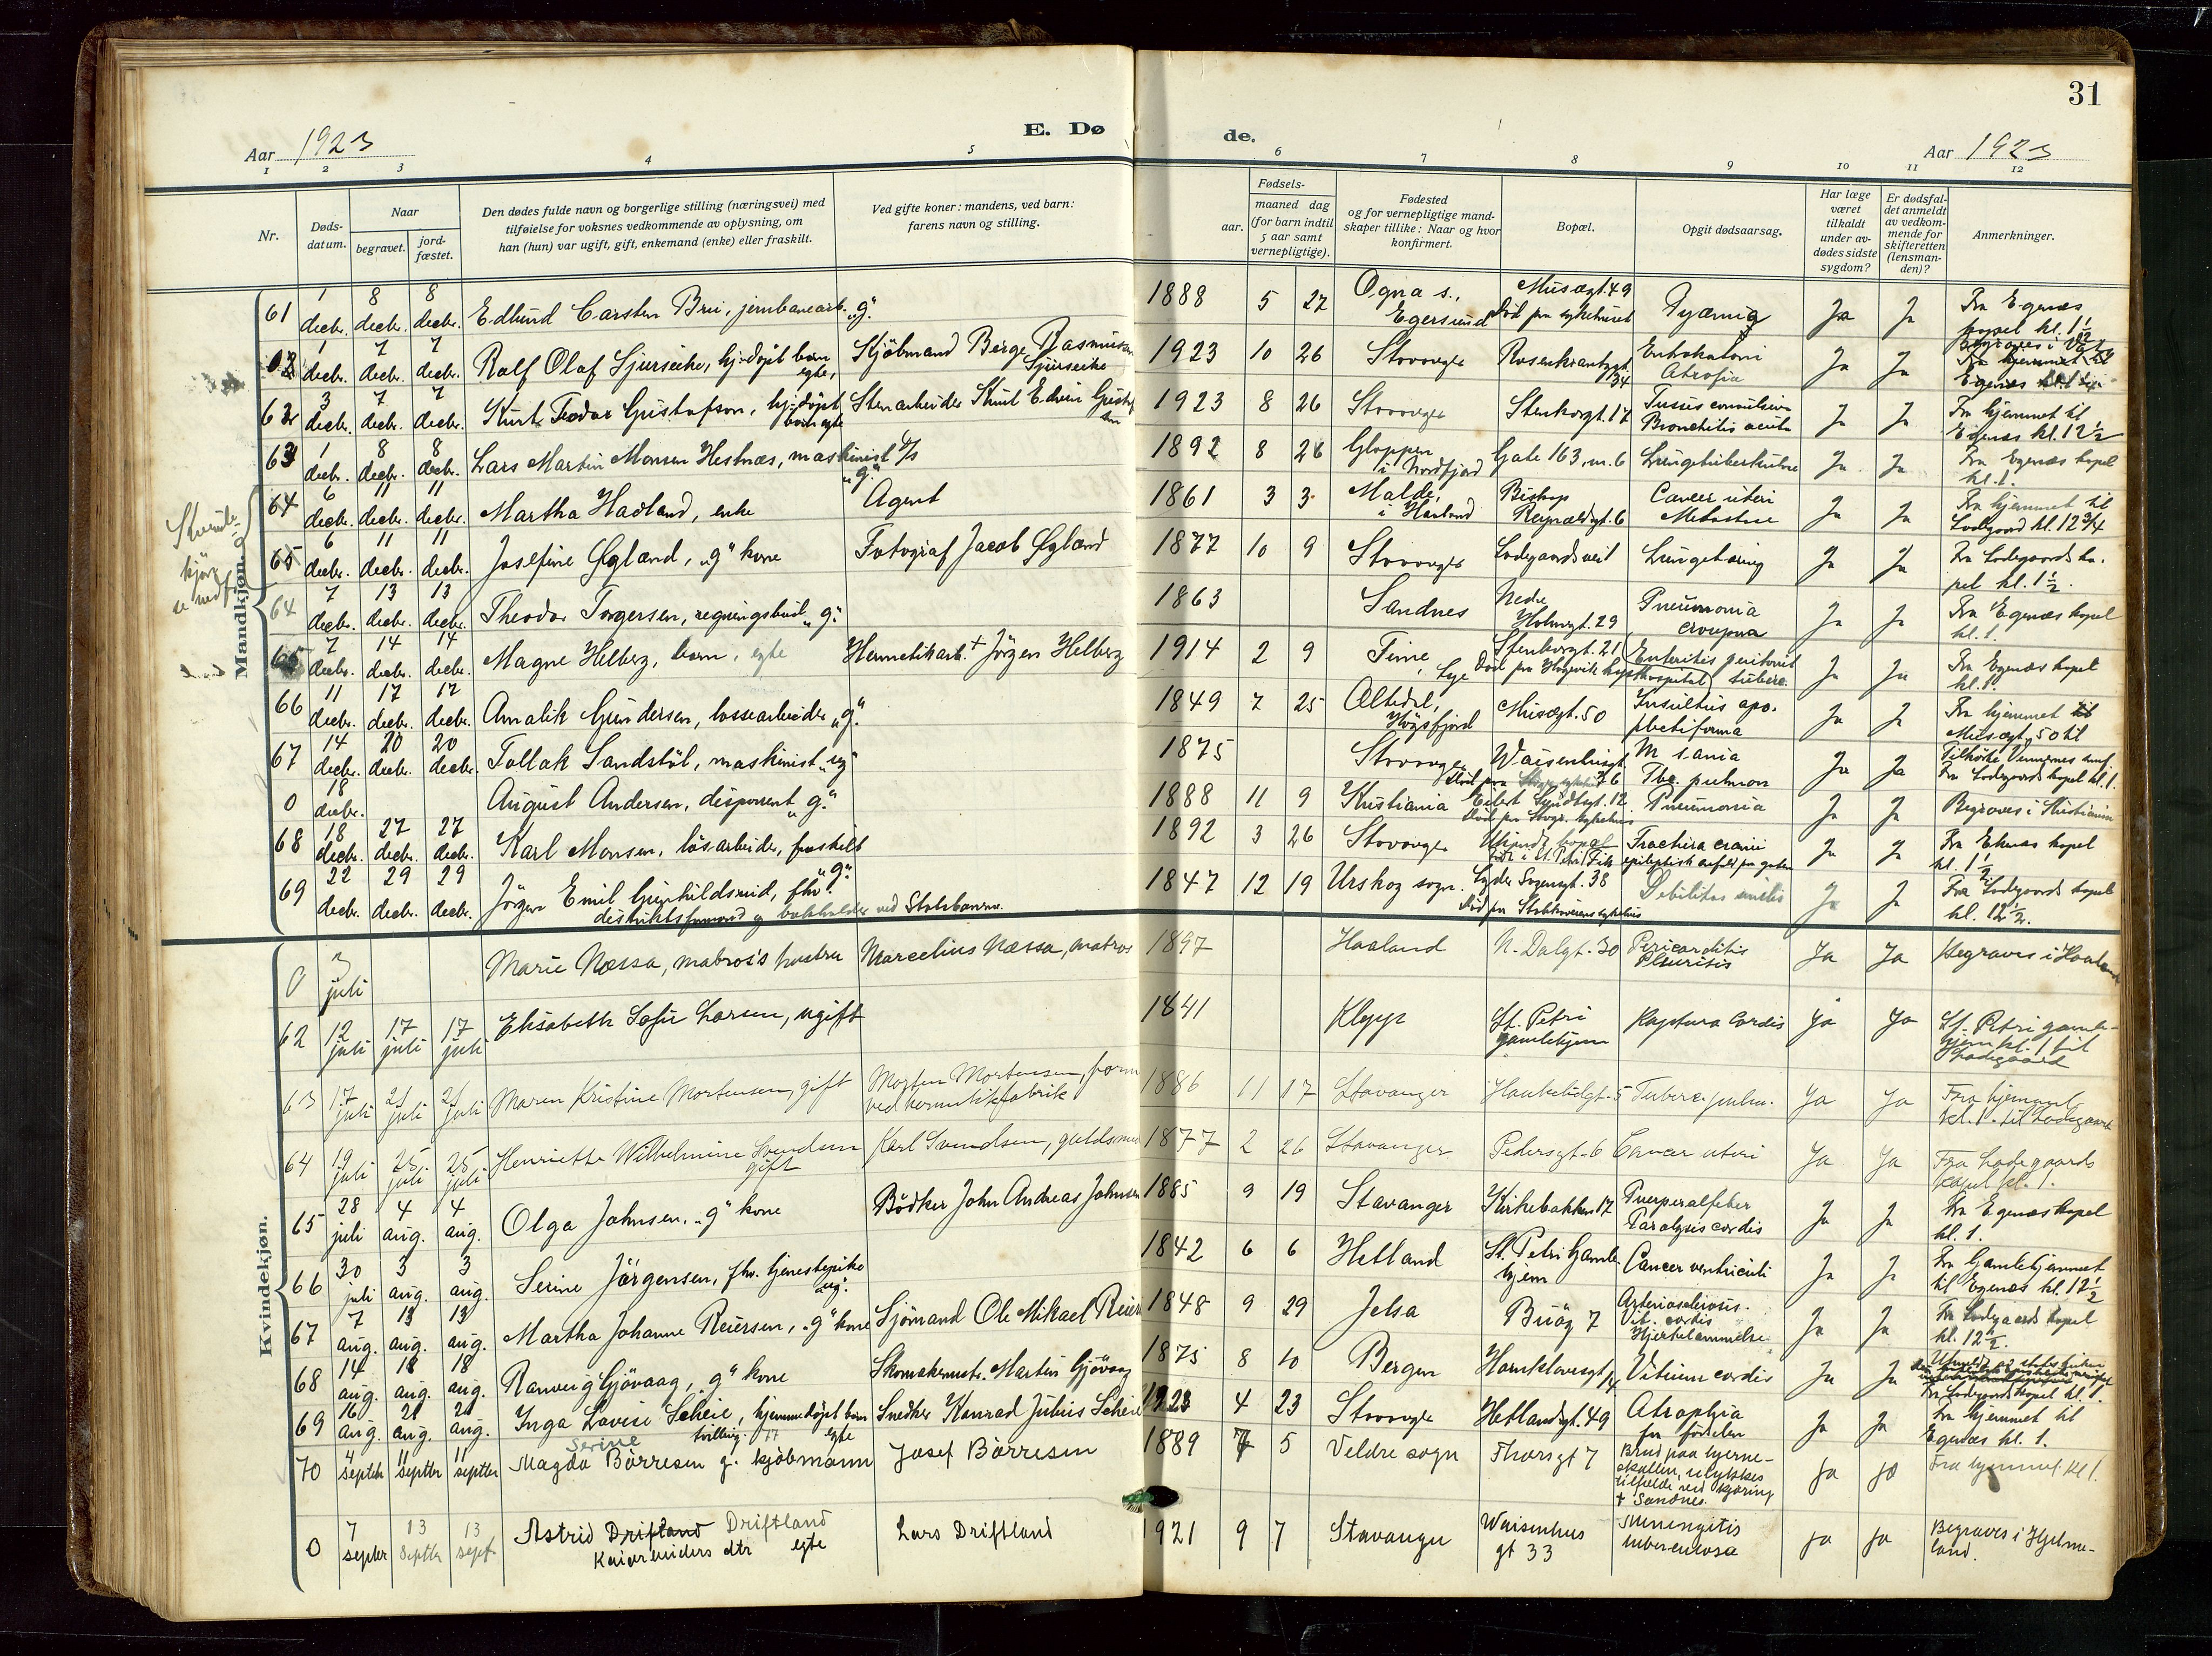 31
E. Dø
de.
Aar 1923
Aar 1923
1 2 3 4 5 6 7 8 9 10 11 12
Nr.
Døds-datum.
Naar
begravet.
jord-fæstet.
Den dødes fulde navn og borgerlige stilling (næringsvei) med
tilføielse for voksnes vedkommende av oplysning, om
han (hun) var ugift, gift, enkemand (enke) eller fraskilt.
Ved gifte koner: mandens, ved barn:
farens navn og stilling.
Fødsels-
aar. maaned dag
(for barn indtil
5 aar samt
vernepligtige).
Fødested
og for vernepligtige mand-
skaper tillike: Naar og hvor
konfirmert.
Bopæl.
Opgit dødsaarsag.
Har læge
været
tilkaldt
under av-
dødes sidste
sygdom?
Er dødsfal-
det anmeldt
av vedkom-
mende for
skifteretten
(lensman-
den)?
Anmerkninger.
Mandkjøn.
61 1 decbr. 8 decbr. 8 decbr. Edlund Carsten Brui, jernbanearb. "g." 1888 5 27 Ogna s., Egersund Musægt. 49 Død paa sykehuset Pyæmia Ja Ja Fra Egenæs kapel kl. 1 1/2
1 decbr. 7 decbr. 7 decbr. Ralf Olaf Sjurseike, hj.døpt barn egte, Kjøbmand Berge Rasmussen Sjurseike 1923 10 26 Stavanger Rosenkrantzgt. 34 Enterokatarr Atrofia Ja Ja
62 3 decbr. 7 decbr. 7 decbr. Kurt Teodor Gustafson, hj.døpt barn egte Stenarbeider Knut Edvin Gustafson 1923 8 26 Stavanger Stenkargt. 17 Tussis convulsiva Bronchitis acuta Ja Ja Fra hjemmet til Egenæs kl. 12 1/2
63 1 decbr. 8 decbr. 8 decbr. Lars Martin Monsen Hestnæs, maskinist D/S "g." 1892 8 26 Gloppen i Nordfjord Gate 163, nr. 6 Lungetuberkulose Ja Ja Fra Egenæs kapel kl. 1.
64 6 decbr. 11 decbr. 11 decbr. Martha Hadland, enke Agent 1861 3 3 Malde, i Hauland Biskop Reynaldsgt. 6 Cancer uteri Metastase Ja Ja Fra hjemmet til Lodegaard kl. 12 3/4
65 6 decbr. 11 decbr. 11 decbr. Josefine Øgland, "g" kone Fotograf Jacob Øgland 1877 10 9 Stavanger Lodegaardsveil Lungetæring Ja Ja Fra Lodegaards kapel kl. 1 1/2.
64 7 decbr. 13 decbr. 13 decbr. Theodor Torgersen, regningsbud "g." 1863 Sandnes Nedre Holmegt. 29 Pneumonia crouposa Ja Ja Fra Egenæs kapel kl. 1.
65 7 decbr. 14 decbr. 14 decbr. Magne Helberg, barn, egte Hermetikarb. + Jörgen Helberg 1914 2 9 Time, Lye Stenkargt. 21 Enteritis peritonit tuberc. Ja Ja Fra Egenæs kapel kl. 1.
66 11 decbr. 17 decbr. 17 decbr. Amalik Gundersen, lossearbeider "g." 1849 7 25 Høgsfjord Musægt. 50 Insultus apoplectiforma Ja Ja Fra hjemmet Musægt. 50 til
67 14 decbr. 20 decbr. 20 decbr. Tollak Sandstöl, maskinist "ug" 1875 Stavanger Waisenhusgt. 76 Tbc. pulmon Ja Ja Tilhørte Vennernes samf. Fra Lodegaards kapel kl. 1.
0 18 decbr. August Andersen, disponent "g." 1888 11 9 Kristiania Eilert Sundtsgt. 12 Død paa Stavgr. sykehus Pneumonia Ja Ja Begraves i Kristiania
68 18 decbr. 27 decbr. 27 decbr. Karl Monsen, løsarbeider, fraskilt 1892 3 26 Stavanger Ukjendt bopæl Fractura cranii epileptisk anfald paa gaten Ja Ja Fra Ekenæs kapel kl. 1 1/2
69 22 decbr. 29 decbr. 29 decbr. Jörgen Emil Gunhildsrud, fhv. "g." distriktsformand og bokholder ved Statsbanerne. 1847 12 19 Urskog sogn. Lyder Sagensgt. 38 Død paa sykehus Debilitas senilis Ja Ja Fra Lodegaards kapel kl. 12 1/2.
Kvindekjøn.
0 3 juli Marie Næssa, matros's hustru Marcelius Næssa, matros 1897 Haaland N. Dalgt. 30 Pericarditis Pleuritis Ja Ja Begraves i Haaland
62 12 juli 17 juli 17 juli Elisabeth Sofie Larsen, ugift 1841 Klepp St. Petri gamlehjem Ruptura Cordis Ja Ja St. Petri gamlehjem kl. 1 til Lodegaard
63 17 juli 21 juli 21 juli Maren Kristine Mortensen, gift Morten Mortensen, form ved hermetikfabrik 1886 11 17 Stavanger Haukeligt. 5 Tuberc. pulm. Ja Ja Fra hjemmet kl. 1. til Lodegaard
64 19 juli 25 juli 25 juli Henriette Wilhelmine Svendsen gift Karl Svendsen, guldsmed 1877 2 26 Stavanger Pedersgt. 6 Cancer uteri Ja Ja Fra Lodegaards kapel kl. 1.
65 28 juli 4 aug. 4 aug. Olga Johnsen, "g" kone Bödker John Andreas Johnsen 1885 9 19 Stavanger Kirkebakken 17 Puerperalfeber Paralysis cordis Ja Ja Fra Egenæs kapel kl. 1.
66 30 juli 3 aug. 3 aug. Serine Jörgensen, fhv. tjenestepike "ug". 1842 6 6 Hetland St. Petri Gamlehjem Cancer ventriculi Ja Ja Fra Gamlehjemmet til Egenæs kl. 12 1/2
67 7 aug. 13 aug. 13 aug. Martha Johanne Reiersen, "g" kone Sjömand Ole Mikael Reier 1848 9 29 Jelsa Buög 7 Arteriosclerosis. Vit. cordis Hjertelammelse Ja Ja Fra Lodegaards kapel kl. 12 1/2.
68 14 aug. 18 aug. 18 aug. Ranveig Gjövaag, "g" kone Skomakermstr. Martin Gjövaag 1875 8 10 Bergen Haraldsgt. 14 Vitium cordis Ja Ja Fra Lodegaards kapel kl. 1.
69 16 aug. 21 aug. 21 aug. Inga Lovise Scheie, hjemmedøpt barn tvilling egte Snedker Konrad Julius Scheie 1923 4 23 Stavanger Hetlandsgt. 49 Atrophia fra fødselen Ja Ja Fra hjemmet til Egenæs kl. 1.
70 4 septbr 11 septbr 11 septbr Magda Serine Börresen g. kjöbmann Josef Börresen 1889 7 5 Veldre sogn Thorsgt 7 Brud paa hjerneskallen, ulykkestilfælde ved kjøring + Sandnes. Ja Ja Fra hjemmet kl 1.
0 7 septbr 13 septbr 13 sept. Astrid Driftland Driftland Kaiarbeiders dtr egte Lars Driftland 1921 9 7 Stavanger Waisenhusgt 33 Meningitis tuberculosa Ja Ja Begraves i Hjelmeland.